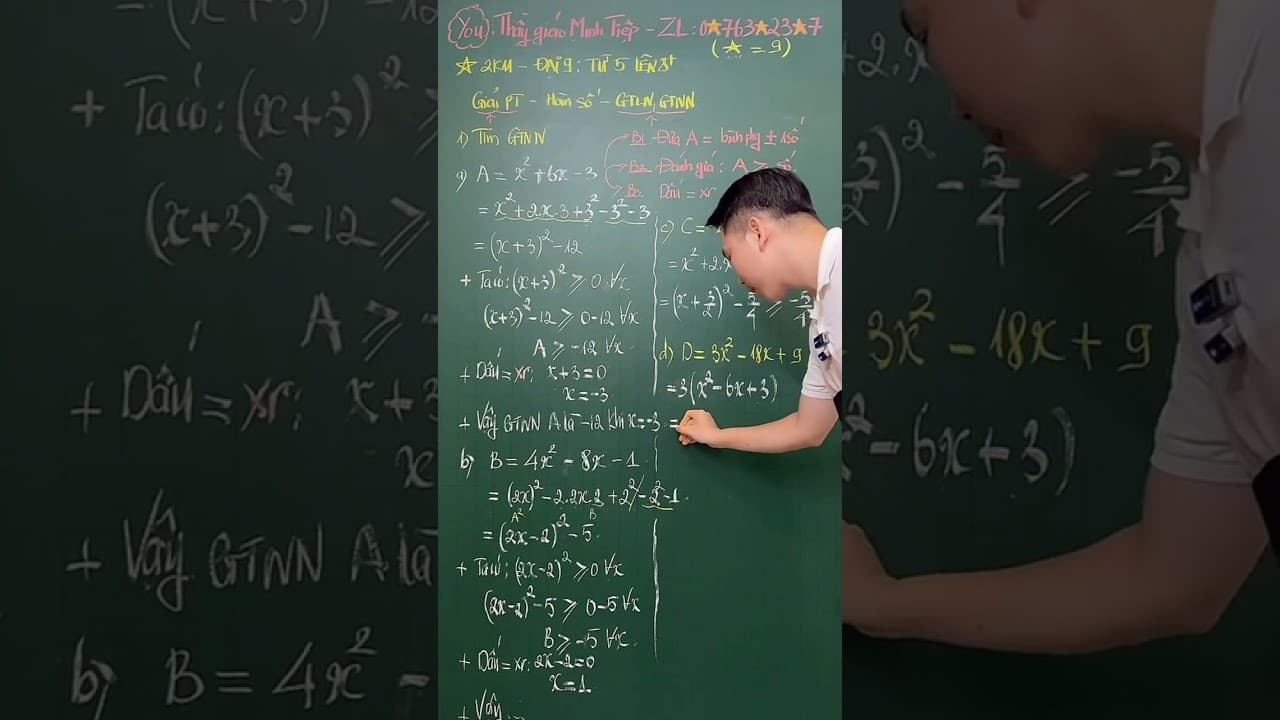 You: Thầy giáo Minh Tiệp - ZL: 0★763★23★7
(★ = 9)
★ 2K11 - ĐẠI 9: TỪ 5 LÊN 8+
Giải PT - Hàm số - GTLN, GTNN
1) Tìm GTNN
B1. Đưa A = bình phg ± 1 số
B2. Đánh giá: A ≥ số
B3. Dấu = xr
a) A = x² + 6x - 3
= x² + 2.x.3 + 3² - 3² - 3
= (x+3)² - 12
+ Ta có: (x+3)² ≥ 0 ∀x
(x+3)² - 12 ≥ 0 - 12 ∀x
A ≥ -12 ∀x
+ Dấu = xr: x + 3 = 0
x = -3
+ Vậy GTNN A là -12 khi x = -3
b) B = 4x² - 8x - 1
= (2x)² - 2.2x.2 + 2² - 2² - 1
A² B
= (2x-2)² - 5
+ Ta có: (2x-2)² ≥ 0 ∀x
(2x-2)² - 5 ≥ 0 - 5 ∀x
B ≥ -5 ∀x
+ Dấu = xr: 2x - 2 = 0
x = 1
+ Vậy ...
c) C =
= x² + 2.x
= (x + 3/2)² - 5/4 ≥ -5/4
d) D = 3x² - 18x + 9
= 3(x² - 6x + 3)
=